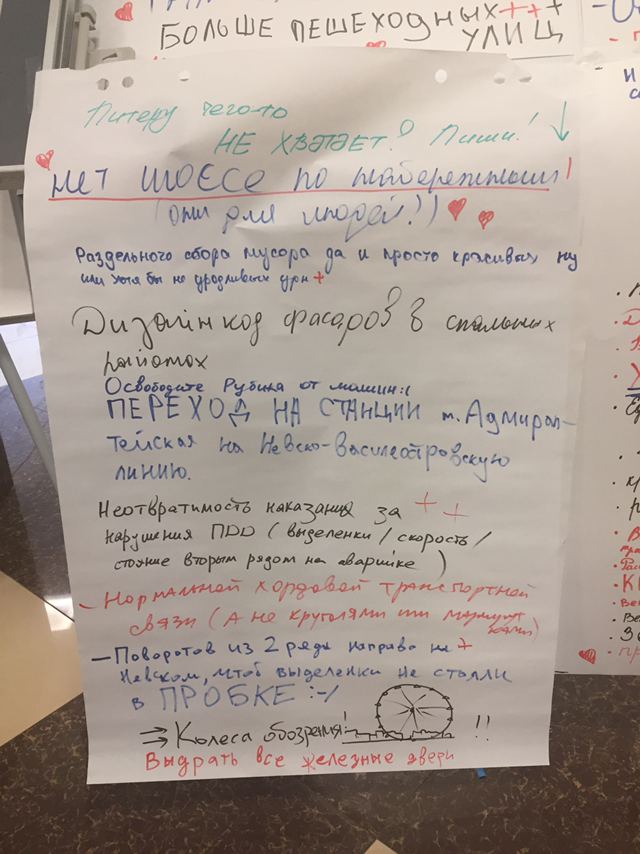 БОЛЬШЕ ПЕШЕХОДНЫХ+++
УЛИЦ
Питеру чего-то
НЕ ХВАТАЕТ? Пиши!
нет шоссе по набережным!
(они для людей!))
Раздельного сбора мусора да и просто красивых ну
или хотя бы не уродливых урн +
Дизайн код фасадов в спальных
районах
Освободите Рубина от машин:(
ПЕРЕХОД НА СТАНЦИИ м. Адмирал-
тейская на Невско-василеостровскую
линию.
Неотвратимость наказания за ++
нарушения ПДД (выделенки / скорость /
стояние вторым рядом на аварийке)
- Нормальной хордовой транспортной
связи (А не круголями
- Поворотов из 2 ряда направо на +
Невском, чтоб выделенки не стояли
в ПРОБКЕ :-/
⇒ Колеса обозрения! !!
Выдрать все железные двери